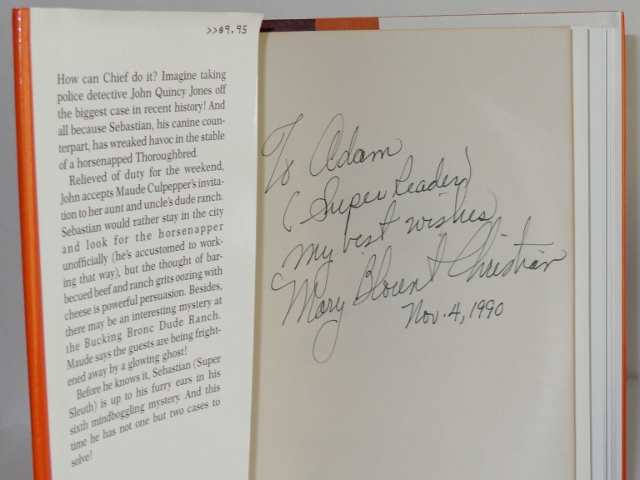 >>$9.95
How can Chief do it? Imagine taking
police detective John Quincy Jones off
the biggest case in recent history! And
all because Sebastian, his canine coun-
terpart, has wreaked havoc in the stable
of a horsenapped Thoroughbred.
Relieved of duty for the weekend,
John accepts Maude Culpepper's invita-
tion to her aunt and uncle's dude ranch.
Sebastian would rather stay in the city
and look for the horsenapper
unofficially (he's accustomed to work-
ing that way), but the thought of bar-
becued beef and ranch grits oozing with
cheese is powerful persuasion. Besides,
there may be an interesting mystery at
the Bucking Bronc Dude Ranch.
Maude says the guests are being fright-
ened away by a glowing ghost!
Before he knows it, Sebastian (Super
Sleuth) is up to his furry ears in his
sixth mindboggling mystery. And this
time he has not one but two cases to
solve!
To Adam
(Super Reader)
my best wishes
Mary Blount Christian
Nov. 4, 1990